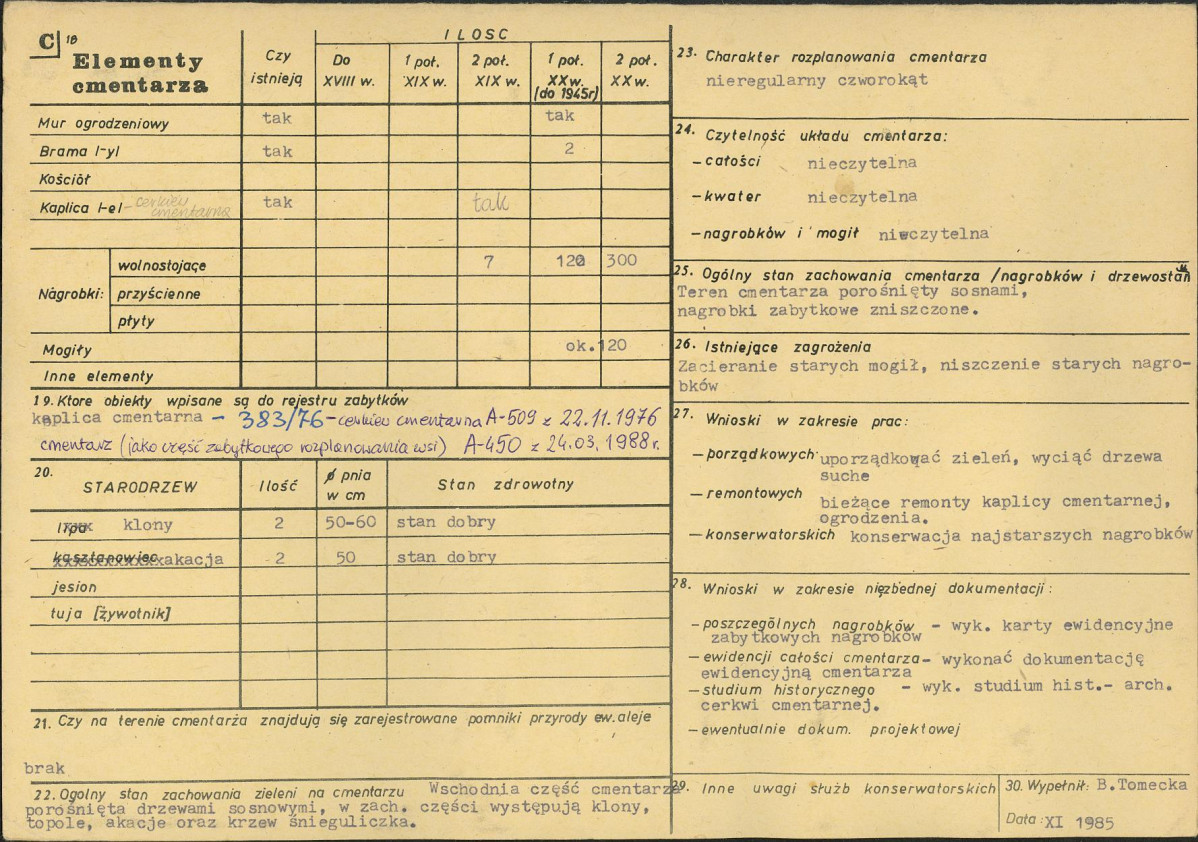 C 18
Elementy
cmentarza
Czy
istnieją
ILOSC
Do
XVIII w.
1 poł.
XIX w.
2 poł.
XIX w.
1 poł.
XX w.
(do 1945r)
2 poł.
XX w.
Mur ogrodzeniowy tak tak
Brama /-y/ tak 2
Kościół
Kaplica /-e/ - cerkiew
cmentarna tak tak
Nagrobki:
wolnostojące 7 120 300
przyścienne
płyty
Mogiły ok.120
Inne elementy
19. Ktore obiekty wpisane są do rejestru zabytków
kaplica cmentarna - 383/76 - cerkiew cmentarna A-509 z 22.11.1976
cmentarz (jako część zabytkowego rozplanowania wsi) A-450 z 24.03.1988 r.
20.
STARODRZEW Ilość ø pnia
w cm Stan zdrowotny
lipa klony 2 50-60 stan dobry
kasztanowiec akacja 2 50 stan dobry
jesion
tuja [żywotnik]
21. Czy na terenie cmentarza znajdują się zarejestrowane pomniki przyrody ew. aleje
brak
22. Ogolny stan zachowania zieleni na cmentarzu Wschodnia część cmentarza
porośnięta drzewami sosnowymi, w zach. części występują klony,
topole, akacje oraz krzew śnieguliczka.
23. Charakter rozplanowania cmentarza
nieregularny czworokąt
24. Czytelność układu cmentarza:
- całości nieczytelna
- kwater nieczytelna
- nagrobków i mogił nieczytelna
25. Ogólny stan zachowania cmentarza /nagrobków i drzewostan
Teren cmentarza porośnięty sosnami,
nagrobki zabytkowe zniszczone.
26. Istniejące zagrożenia
Zacieranie starych mogił, niszczenie starych nagro-
bków
27. Wnioski w zakresie prac:
- porządkowych uporządkować zieleń, wyciąć drzewa
suche
- remontowych bieżące remonty kaplicy cmentarnej,
ogrodzenia.
- konserwatorskich konserwacja najstarszych nagrobków
28. Wnioski w zakresie nięzbednej dokumentacji:
- poszczególnych nagrobków - wyk. karty ewidencyjne
zabytkowych nagrobków
- ewidencji całości cmentarza - wykonać dokumentację
ewidencyjną cmentarza
- studium historycznego - wyk. studium hist.- arch.
cerkwi cmentarnej.
- ewentualnie dokum. projektowej
29. Inne uwagi służb konserwatorskich
30. Wypełnił: B.Tomecka
Data: XI 1985